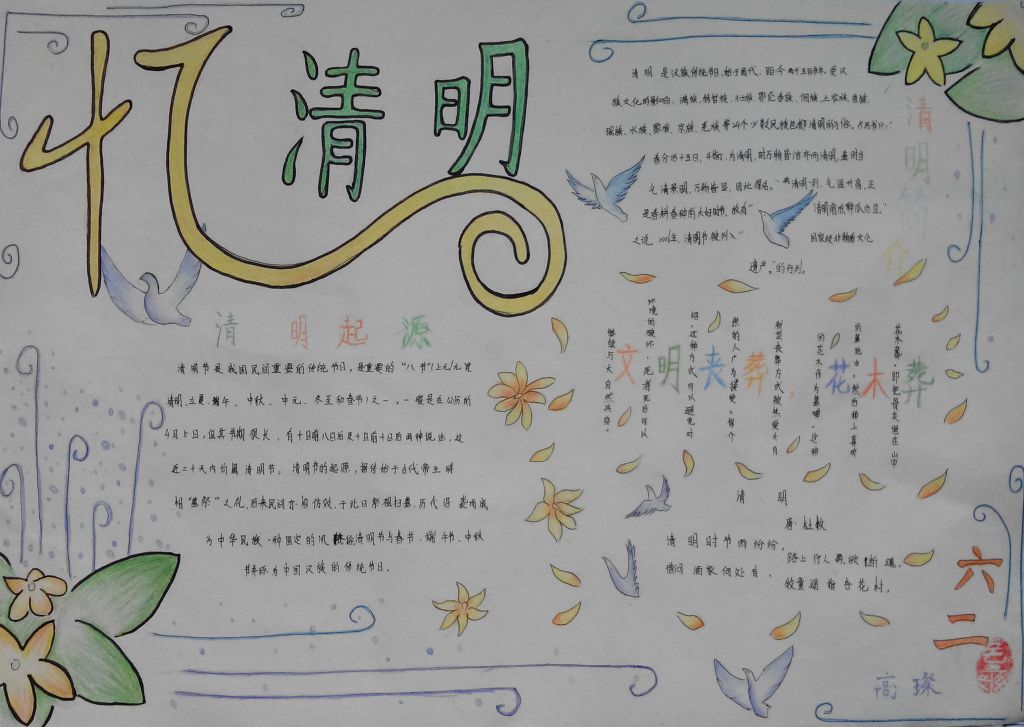 忆清明
清明起源
清明节是我国民间重要的传统节日,是重要的“八节”(上元/元宵
清明、立夏、端午、中秋、中元、冬至和春节)之一。一般是在公历的
4月5日,但其节期很长,有十日前八日后及十日前十日后两种说法,这
近二十天内均属清明节。清明节的起源,据传始于古代帝王将
相“墓祭”之礼,后来民间亦相仿效,于此日祭祖扫墓,历代沿袭而成
为中华民族一种固定的风俗。清明节与春节、端午节、中秋
节并称为中国汉族的传统节日。
清明简介
清明是汉族传统节日,始于周代,距今两千五百多年。受汉
族文化的影响,满族、赫哲族、壮族、鄂伦春族、侗族、土家族、苗族、
瑶族、水族、黎族、京族、羌族等24个少数民族也都清明的习俗。《历书》:“
春分后十五日,斗指丁,为清明,时万物皆洁齐而清明,盖时当
气清景明,万物皆显,因此得名。”“清明一到,气温升高,正
是春耕春种的大好时节,故有“清明前后种瓜点豆。”
之说。2006年,清明节被列入“国家级非物质文化
遗产。”的行列。
文明丧葬,花木葬
花木葬:即把骨灰埋在山中
的墓地由,然后种上喜欢
的花木作为墓碑。这种
新型丧葬方式被热爱大自
然的人广为接受。据介
绍,这种方式可以避免对
环境的破坏,死者死后可以
继续与大自然共存。
清明
唐·杜牧
清明时节雨纷纷,
路上行人欲断魂。
借问酒家何处有,
牧童遥指杏花村。
六二
高璨